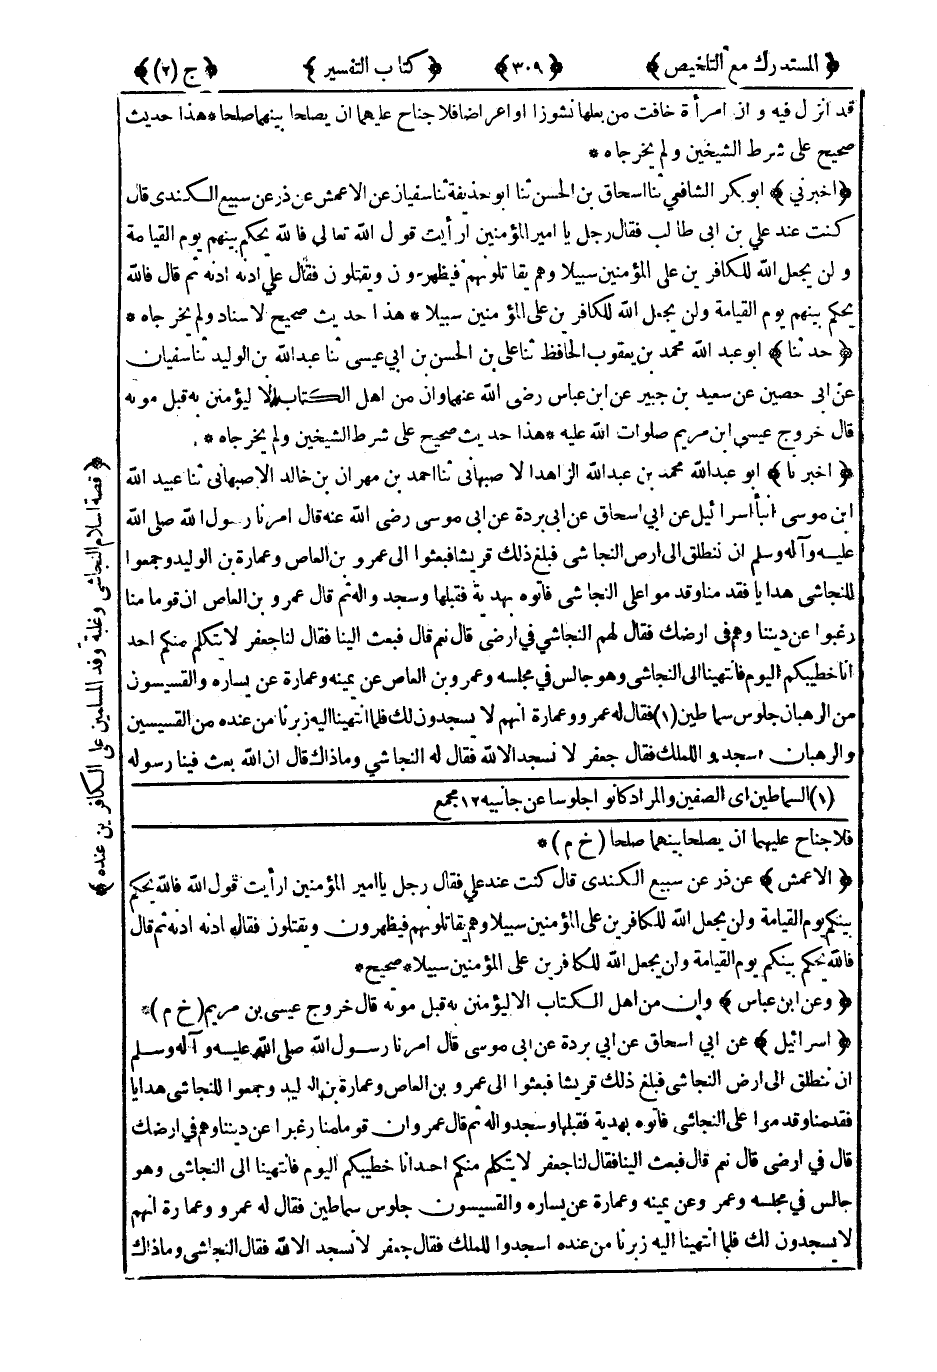 ﴿ المستدرك مع التلخيص ﴾ ﴿ ٣٠٩ ﴾ ﴿ كتاب التفسير ﴾ ﴿ ج (٢) ﴾
قد انزل فيه و ان امرأة خافت من بعلها نشوزا او اعراضا فلا جناح عليهما ان يصلحا بينهما صلحا * هذا حديث
صحيح على شرط الشيخين ولم يخرجاه *
﴿ اخبرني ﴾ ابو بكر الشافعي ثنا اسحاق بن الحسن ثنا ابو حذيفة ثنا سفيان عن الاعمش عن ذر عن سبيع الكندى قال
كنت عند علي بن ابى طالب فقال رجل يا امير المؤمنين ارأيت قول الله تعالى فالله يحكم بينهم يوم القيامة
ولن يجعل الله للكافرين على المؤمنين سبيلا وهم يقاتلونهم فيظهرون ويقتلون فقال علي ادنه ادنه ثم قال فالله
يحكم بينهم يوم القيامة ولن يجعل الله للكافرين على المؤمنين سبيلا * هذا حديث صحيح لاسناد ولم يخرجاه *
﴿ حدثنا ﴾ ابو عبد الله محمد بن يعقوب الحافظ ثنا على بن الحسن بن ابي عيسى ثنا عبد الله بن الوليد ثنا سفيان
عن ابى حصين عن سعيد بن جبير عن ابن عباس رضى الله عنهما وان من اهل الكتاب الا ليؤمنن به قبل موته
قال خروج عيسى ابن مريم صلوات الله عليه * هذا حديث صحيح على شرط الشيخين ولم يخرجاه *
﴿ اخبرنا ﴾ ابو عبد الله محمد بن عبد الله الزاهد الاصبهانى ثنا احمد بن مهران بن خالد الاصبهانى ثنا عبيد الله
ابن موسى انبأ اسرائيل عن ابي اسحاق عن ابى بردة عن ابى موسى رضى الله عنه قال امرنا رسول الله صلى الله
عليه وآله وسلم ان ننطلق الى ارض النجاشى فبلغ ذلك قريشا فبعثوا الى عمرو بن العاص وعمارة بن الوليد وجمعوا
للنجاشى هدايا فقدمنا وقدموا على النجاشى فاتوه بهدية فقبلها وسجدوا له ثم قال عمرو بن العاص ان قوما منا
رغبوا عن ديننا وهم فى ارضك فقال لهم النجاشي في ارضى قال نعم قال فبعث الينا فقال لنا جعفر لا يتكلم منكم احد
انا خطيبكم اليوم فانتهينا الى النجاشى وهو جالس في مجلسه وعمرو بن العاص عن يمينه وعمارة عن يساره والقسيسون
من الرهبان جلوس سماطين (١) فقال له عمرو وعمارة انهم لا يسجدون لك فلما انتهينا اليه زبرنا من عنده من القسيسين
والرهبان اسجدوا للملك فقال جعفر لا نسجد الا لله فقال له النجاشي وما ذاك قال ان الله بعث فينا رسوله
(١) السماطين اى الصفين والمراد كانوا جلوسا عن جانبيه ١٢ مجمع
فلا جناح عليهما ان يصلحا بينهما صلحا (خ م) *
﴿ الاعمش ﴾ عن ذر عن سبيع الكندى قال كنت عند علي فقال رجل يا امير المؤمنين ارأيت قول الله فالله يحكم
بينكم يوم القيامة ولن يجعل الله للكافرين على المؤمنين سبيلا وهم يقاتلونهم فيظهرون ويقتلون فقال ادنه ادنه ثم قال
فالله يحكم بينكم يوم القيامة ولن يجعل الله للكافرين على المؤمنين سبيلا * صحيح *
﴿ وعن ابن عباس ﴾ وان من اهل الكتاب الا ليؤمنن به قبل موته قال خروج عيسى بن مريم (خ م) *
﴿ اسرائيل ﴾ عن ابي اسحاق عن ابي بردة عن ابى موسى قال امرنا رسول الله صلى الله عليه وآله وسلم
ان ننطلق الى ارض النجاشى فبلغ ذلك قريشا فبعثوا الى عمرو بن العاص وعمارة بن الوليد وجمعوا للنجاشى هدايا
فقدمنا وقدموا على النجاشى فاتوه بهدية فقبلها وسجدوا له ثم قال عمرو ان قوما منا رغبوا عن ديننا وهم في ارضك
قال في ارضى قال نعم قال فبعث الينا فقال لنا جعفر لا يتكلم منكم احد انا خطيبكم اليوم فانتهينا الى النجاشى وهو
جالس في مجلسه وعمرو عن يمينه وعمارة عن يساره والقسيسون جلوس سماطين فقال له عمرو وعمارة انهم
لا يسجدون لك فلما انتهينا اليه زبرنا من عنده اسجدوا للملك فقال جعفر لا نسجد الا لله فقال النجاشى وما ذاك
﴿ قصة اسلام النجاشى وغلبة وفد المسلمين على الكافرين عنده ﴾